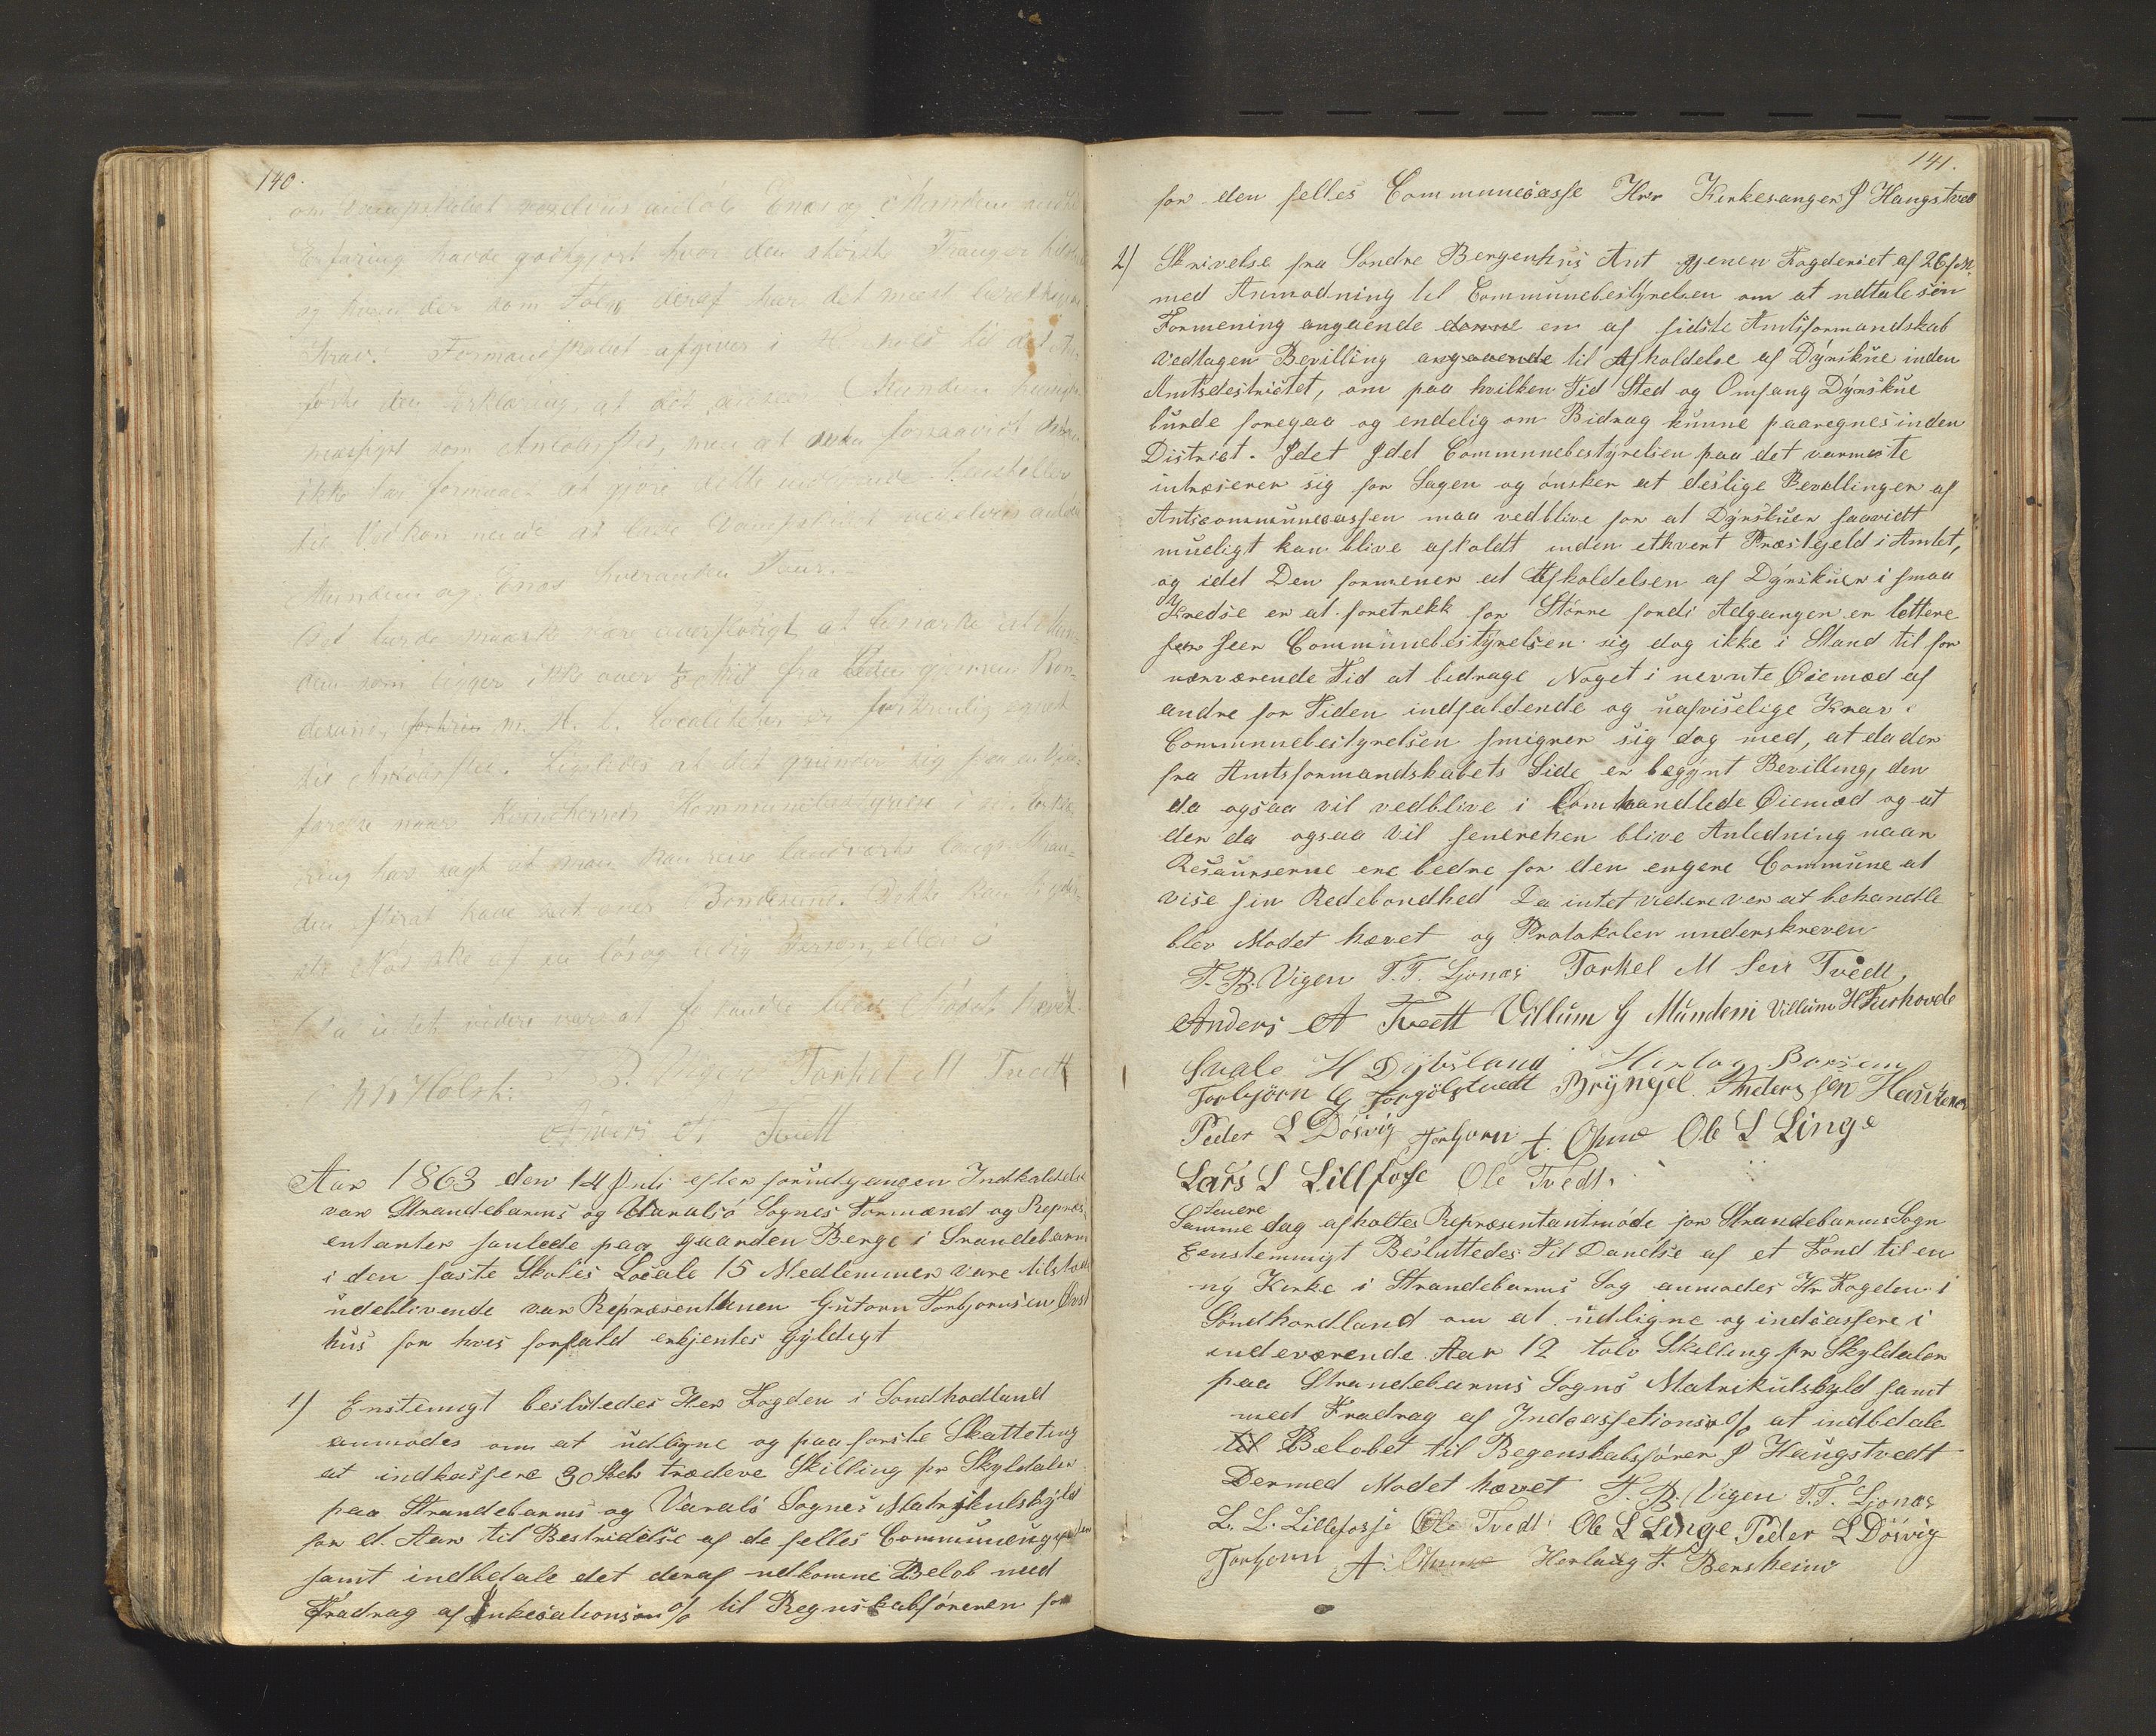 140.
om Dampskibet vexelvis anløb Enæs og Mundem indtil
Erfaring havde godtgjort hvor den største Trang er
og hvem der som Følge deraf har det mest
Krav. Formandskabet afgiver i H
den Erklæring, at det anseer Munden
som Anløbssted, men at
ikke har formaaet at gjøre dette
til at lade Dampskibet vexelvis anløbe
Munden og Enæs hveranden Tour.
Det burde maaske være overflødigt at bemærke at Mun-
den som ligger ikke over 1/8 Miil fra gjennem Bon-
desund, m. H. t. Localiteter er fortrinlig egnet
til Anløbssted. Ligeledes at det grunder sig paa en Vild-
farelse naar Kommunebestyrelse i sin Erklæ-
ring har sagt at man kan reise landværts langs Stran-
den efterat have sat over Bondesund. Dette kan
Nød ske af en løs og ledig Person, eller
Da intet videre var at behandle blev Mødet hævet.
Holst. B. Vigen Torkel M Tvedt
Anders A Tvett
Aar 1863 den 14 Juli efter forudgangen Indkaldelse
var Strandebarms og Varalsö Sognes Formænd og Repræs
entanter samlede paa gaarden Berge i Strandebarm
i den faste Skoles Locale 15 Medlemmer vare tilstede
udeblivende var Repræsentanen Gutorm Torbjornsen Øvst
hus for hvis forfald erkjentes gyldigt
1) Enstemigt besluttedes Her Fogden i Søndhodland
anmodes om at udligne og paa forste Skatteting
at indkassere 30 Sk tredeve Skilling pr Skyldaler
paa Strandebarms og Varalsö Sognes Matrikulskyld
for d. Aar til Bestridelse af de felles Communeugifter
samt indbetale det deraf udkomne Beløb med
Fradrag af Inkesations % til Regnskabsföreren for
141.
for den felles Communecasse Hrr Kirkesanger J Haugstved
2) Skrivelse fra Søndre Bergenhus Amt gjenem Fogderiet af 26 f. M.
med Anmodning til Communebestyrelsen om at udtale sin
Formening angaende denne en af sidste Amtsformandskab
vedtagen Bevilling angaaende til Afholdelse af Dyrskue inden
Amtsdestrictet, om paa hvilken Tid Sted og Omfang Dyrskue
burde foregaa og endelig om Bidrag kunne paaregnes inden
District. Idet Idet Communebestyrelsen paa det varmeste
intræserer sig for Sagen og ønsker at deslige Bevillinger af
Amtscommunecassen maa vedblive for at Dyrskuer saavidt
mueligt kan blive afholdt inden ethvert Præstegjeld i Amtet,
og idet Den formener at Afholdelsen af Dyrskuer i smaa
Kredse er at foretrekk for Större fordi Adgangen er lettere
seer Communebestyrelsen sig dog ikke i Stand til for
nærværende Tid at bidrage Noget i nevnte Öiemæd af
andre for Tiden indfaldende og uafviselige Krav.
Communebestyrelsen smigrer sig dog med, at da der
fra Amtsformandskabets Side er begynt Bevilling, den
da ogsaa vil vedblive i omhandlede Öiemæd og at
der da ogsaa vil senerehen blive Anledning naar
Resaurserne ere bedre for den engere Commune at
vise sin Redebondhed Da intet videre var at behandle
blev Modet hævet og Protokolen underskreven
T. B. Vigen T. T. Ljonæs Torkel M Sen Tvedt,
Anders A Tvett Villum G Mundem Villum H Furhovde
Sjale H Dysland Herlag Barsem
Torbjörn G Torgölstvedt Bryngel Anderssen Haukenes
Peder L Dösvig Torbjorn A. Ohme Ole L Linge
Lars L Lillefosse Ole Tvedt.
Senere
Samme dag afholtes Repræsentantmöde for Strandebarms Sogn
Eenstemmigt Besluttedes Til Danelse af et Fond til en
ny Kirke i Strandebarms Sog anmodes Hr Fogden i
Söndhordland om at udligne og indcassere i
indeværende Aar 12 tolv Skilling pr Skyldaler
paa Strandebarms Sogns Matrikulskyld samt
med Fradrag af Indcassetions % at indbetale
til Bælobet til Regenskabsförer J Haugstvedt
Dermed Modet hævet T. B. Vigen T. T. Ljonæs
L. L. Lillefosse Ole Tvedt Ole L Linge Peder L Dösvig
Torbjorn A. Ohme Herlaug T. Bersheim